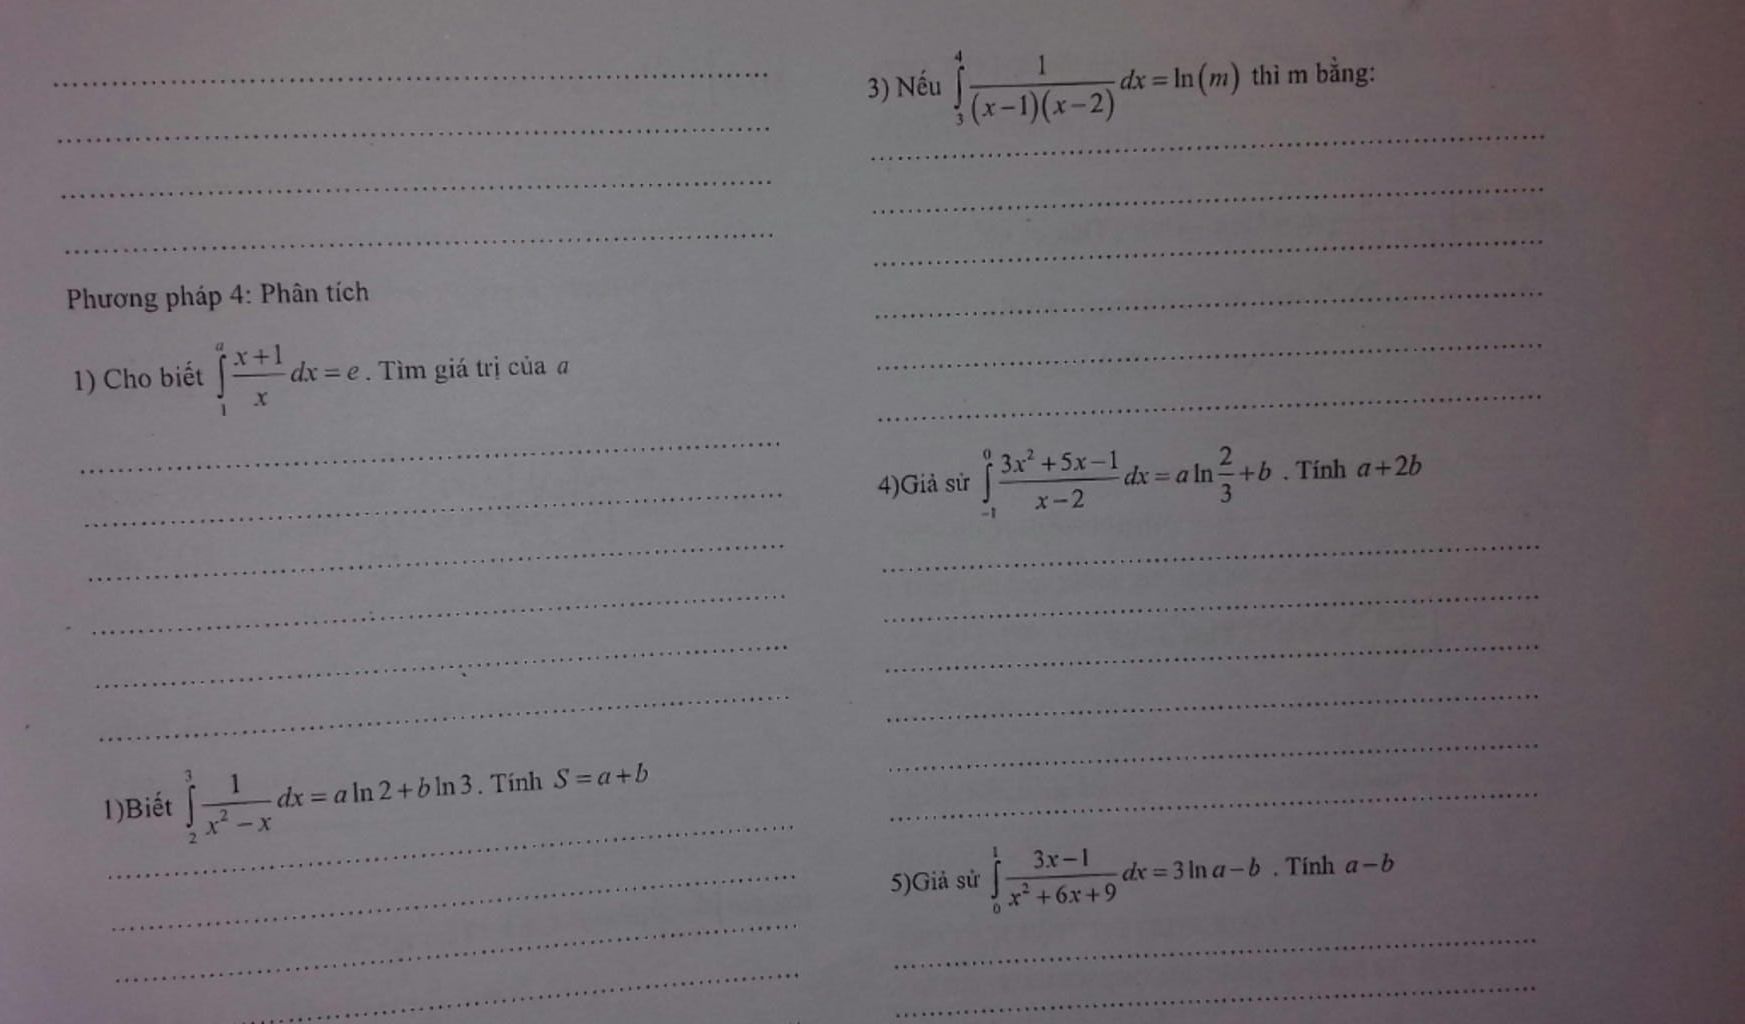 Phương pháp 4: Phân tích
1) Cho biết \int_{1}^{a} \frac{x+1}{x} dx = e . Tìm giá trị của a
1)Biết \int_{2}^{3} \frac{1}{x^2 - x} dx = a ln 2 + b ln 3 . Tính S = a + b
3) Nếu \int_{3}^{4} \frac{1}{(x-1)(x-2)} dx = ln(m) thì m bằng:
4)Giả sử \int_{-1}^{0} \frac{3x^2 + 5x - 1}{x - 2} dx = a ln \frac{2}{3} + b . Tính a + 2b
5)Giả sử \int_{0}^{1} \frac{3x - 1}{x^2 + 6x + 9} dx = 3 ln a - b . Tính a - b